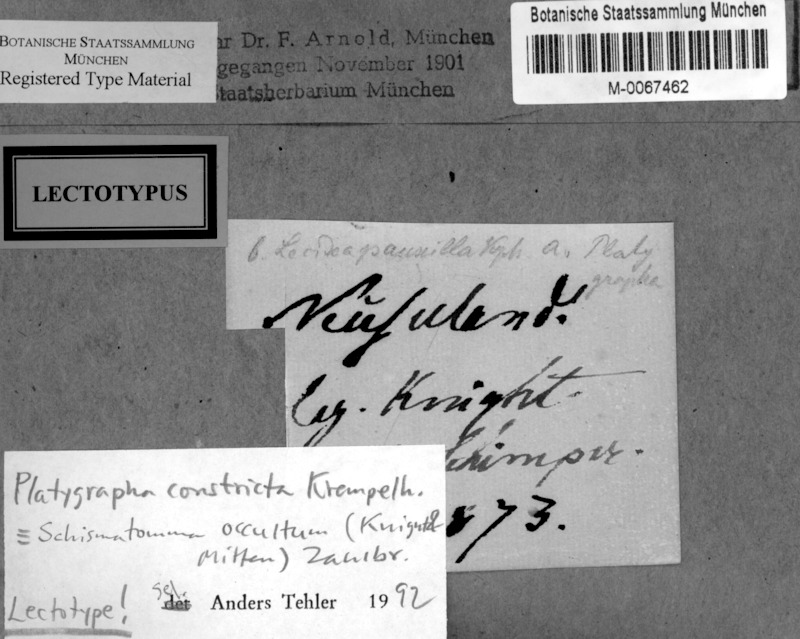 BOTANISCHE STAATSSAMMLUNG
MÜNCHEN
Registered Type Material
hr Dr. F. Arnold, München
gegangen November 1901
Staatsherbarium München
Botanische Staatssammlung München
M-0067462
LECTOTYPUS
b. Lecidea pauxilla Kph. a. Platy
grapha
Neuseeland.
leg. Knight.
Schimper.
1873.
Platygrapha constricta Krempelh.
≡ Schismatomma occultum (Knight &
Mitten) Zahlbr.
Lectotype! sel. det Anders Tehler 1992